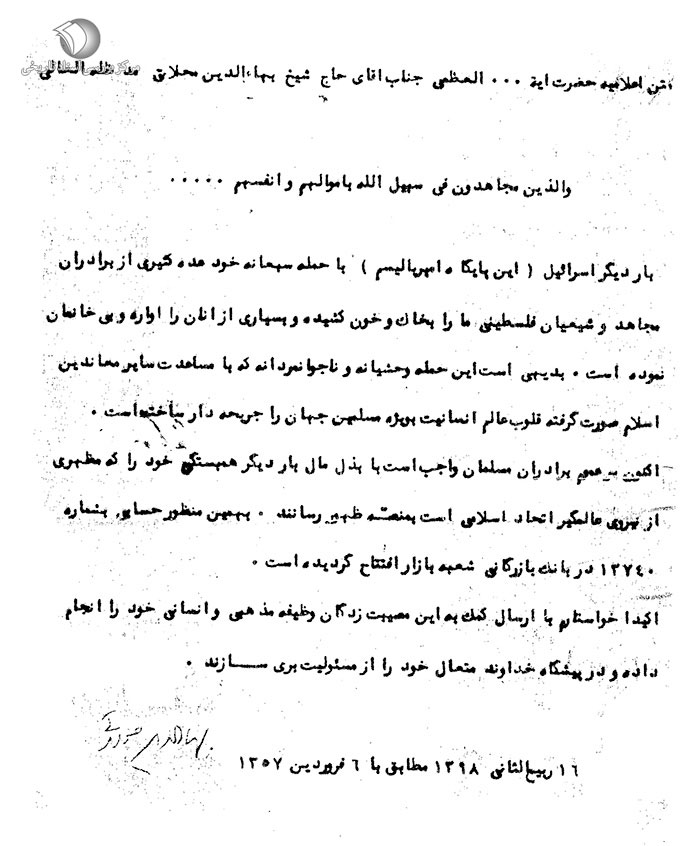 مرکز بررسی اسناد تاریخی
متن اعلامیه حضرت ایة ۰۰۰ العظمی جناب اقای حاج شیخ بهاءالدین محلاتی مد ظله العالی
والذین مجاهدون فی سبیل الله باموالهم و انفسهم ۰۰۰۰۰
بار دیگر اسرائیل ( این پایگاه امپریالیسم ) با حمله سبعانه خود عده کثیری از برادران
مجاهد و شیعیان فلسطینی ما را بخاك و خون کشیده و بسیاری از انان را اواره و بی خانمان
نموده است ۰ بدیهی است این حمله وحشیانه و ناجوانمردانه که با مساعدت سایر معاندین
اسلام صورت گرفته قلوب عالم انسانیت بویژه مسلمین جهان را جریحه دار ساخته است ۰
اکنون بر عموم برادران مسلمان واجب است با بذل مال بار دیگر همبستگی خود را که مظهری
از نیروی عالمگیر اتحاد اسلامی است بمنصّه ظهور رسانند ۰ بهمین منظور حسابی بشماره
۱۲۷۴۰ در بانك بازرگانی شعبه بازار افتتاح گردیده است ۰
اکیدا خواستارم با ارسال کمك به این مصیبت زدگان وظیفه مذهبی و انسانی خود را انجام
داده و در پیشگاه خداوند متعال خود را از مسئولیت بری ســـازند ۰
بهاءالدین محلاتی
۱۶ ربیع الثانی ۱۳۹۸ مطابق با ۶ فروردین ۱۳۵۷